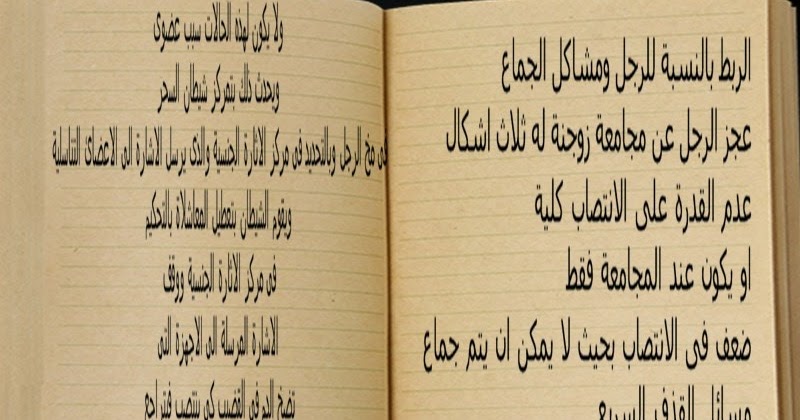 الربط بالنسبة للرجل ومشاكل الجماع
عجز الرجل عن مجامعة زوجنة له ثلاث اشكال
عدم القدرة على الانتصاب كلية
او يكون عند المجامعة فقط
ضعف فى الانتصاب بحيث لا يمكن ان يتم جماع
مسائل القذف السريع
ولا يكون لهذه الحالات سبب عضوى
ويحدث ذلك بتمركز شيطان السحر
فى مخ الرجل وبالتحديد فى مركز الاثارة الجنسية والذى يرسل الاشارة الى الاعضائ التناسلية
ويقوم الشيطان بتعطيل المعاشلاة بالتحكيم
فى مركز الاثارة الجنسية ووقف
الاشارة المرسلة الى الاجهزة التى
تضخ الدم فى القضيب كى ينتصب فيتراجع